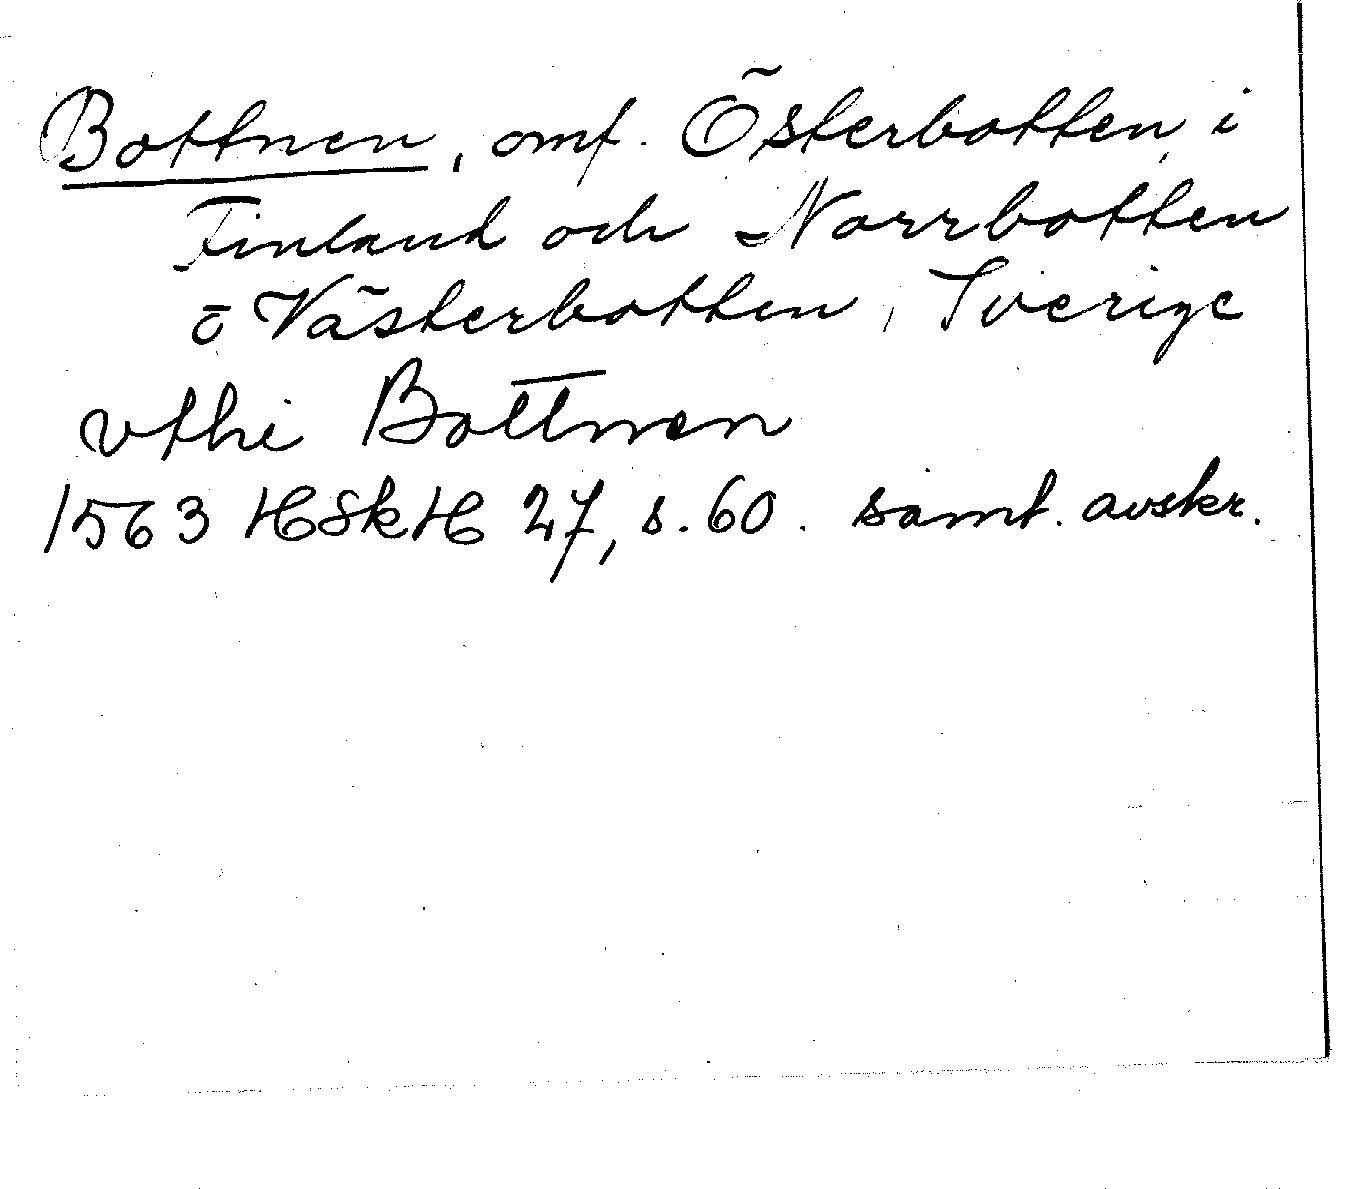 Bottnen, omf. Österbotten i
Finland och Norrbotten
o Västerbotten, Sverige
vthi Bottnen
1563 HSkH 27, s. 60. samt. avskr.